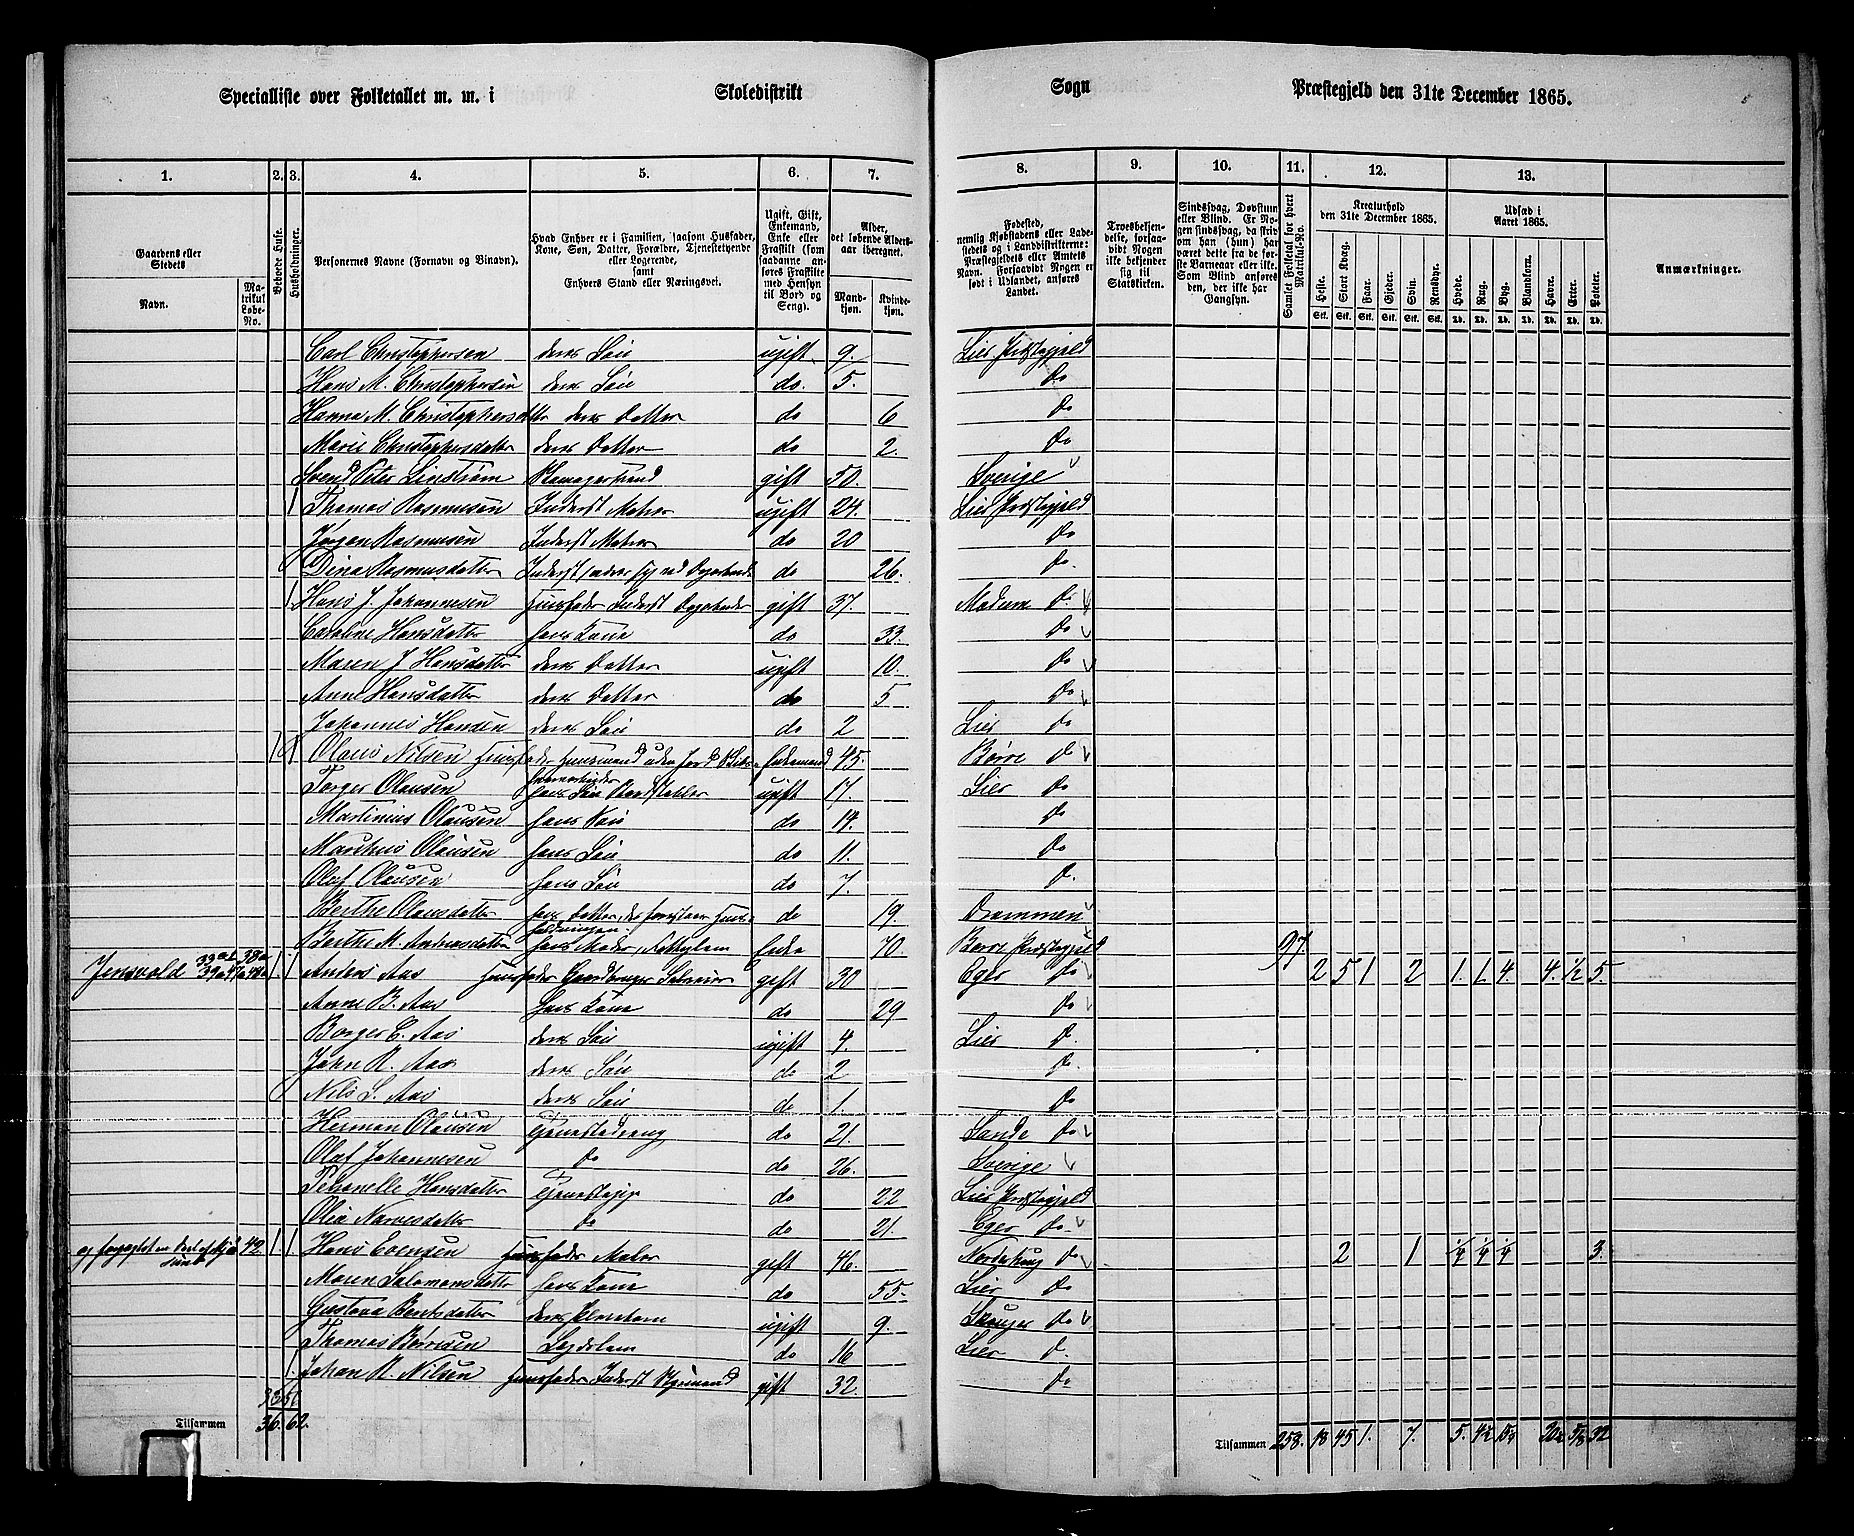 Specialliste over Folketallet m. m. i Skoledistrikt Sogn Præstegjeld den 31te December 1865.
1. 2. 3. 4. 5. 6. 7. 8. 9. 10. 11. 12. 13.
Gaardens eller Stedets
Navn.
Matrikul Løbe-No.
Beboede Huse.
Husholdninger.
Personernes Navne (Fornavn og Binavn).
Hvad Enhver er i Familien, saasom Husfader, Kone, Søn, Datter, Forældre, Tjenestetyende eller Logerende,
samt
Enhvers Stand eller Næringsvei.
Ugift, Gift, Enkemand, Enke eller Fraskilt (som saadanne anføres Fraskilte med Hensyn til Bord og Seng).
Alder, det løbende Aldersaar iberegnet.
Mandkjøn. Kvindekjøn.
Fødested, nemlig Kjøbstadens eller Ladestedets eller i Landdistrikterne: Præstegjeldets eller Amtets Navn. Forsaavidt Nogen er født i Udlandet, anføres Landet.
Troesbekjendelse, forsaavidt Nogen ikke bekjender sig til Statskirken.
Sindssvag, Døvstum eller Blind. Er Nogen sindssvag, da skriv om han (hun) har været dette fra de første Barneaar eller ikke. Som Blind anføres den, der ikke har Gangsyn.
Samlet Folketal for hvert Matrikul-No.
Kreaturhold den 31te December 1865.
Heste. Stort Kvæg. Faar. Gjeder. Svin. Rensdyr.
Stk. Stk. Stk. Stk. Stk. Stk.
Udsæd i Aaret 1865.
Hvede. Rug. Byg. Blandkorn. Havre. Erter. Poteter.
Td. Td. Td. Td. Td. Td. Td.
Anmærkninger.
Carl Christophersen deres Søn ugift 9. Lier Præstegjeld
Hans M. Christophersen deres Søn do. 5. Do
Hanne M. Christophersdtter deres Datter do 6 Do
Marie Christophersdatter deres Datter do 2. Do
Svend Peter Lindstrøm gift 50. Sverige
1 Thomas Rasmussen Inderst Matros ugift 24. Lier Præstegjeld
Jørgen Rasmusen Inderst Matros do 20 Do
Dina Rasmusdatter Inderst do 26. Do.
1 Hans J. Johannesen Huusfader Inderst gift 37. Modum Do
Caroline Hansdatter hans Kone do 33. Do
Maren J Hansdatter deres Datter ugift 10. Do
Anne Hansdatter deres Datter do 5 Do
Johannes Hansen deres Søn do 2 Lier Do
Olaus Nilsen Huusfader Huusmand uden Jord Enkemand 45. Borre Do
Torger Olausen hans Søn ugift 17. Lier Do
Martinius Olausen hans Søn do 14. Do
Mathias Olausen hans Søn do 11. Do
Olaf Olausen hans Søn do 7. D.
Berthe Olausdatter hans Datter, der forestaar Huusholdningen. do 19. Drammen
Berthe M. Andreasdatter hans Moder, Enke 70. Borre Præstegjeld 97.
Jensvold 1 1 Anders Aas Huusfader Gaardbruger Selveier gift 30 Eger Do 2 5 1 2 1. 1. 4. 4. 1/2 5.
Anne B. Aas hans Kone do 29 Do
Borger C. Aas deres Søn ugift 4. Lier D.
John R. Aas deres Søn do 2 Do.
Nils S. Aas deres Søn do 1. Do
Herman Olausen Tjenestedreng do 21. Sande Do
Olaf Johannesen Do do 26. Sverige
Petronelle Hansdatter Tjenestepige do 22 Lier Præstegjeld
Olia Narvesdatter Do do 21. Eger Do
42. 1 1. Hans Evensen Huusfader Maler gift 46. Do 2 1 1/4 1/4 1/4 3.
Maren Salomonsdatter hans Kone do 55. Lier Do
Gustava Berntsdatter deres Pleiebarn ugift 9. Skouger Do
Thomas Børresen Lægdslem do 16 Lier D.
1. Johan R. Nilsen Huusfader Inderst gift 32. Do
33 51
Tilsammen 36. 62.
Tilsammen 258. 18 45 1. 7. 5.